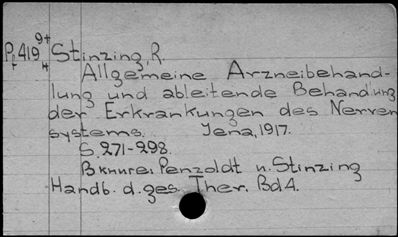 P.419 9+ Stinzing, R.
Allgemeine Arzneibehand-
lung und ableitende Behandlung
der Erkrankungen des Nerven
systems. Jena, 1917.
S. 271-298.
Penzoldt u. Stinzing
Handb. d. ges. Ther. Bd 4.